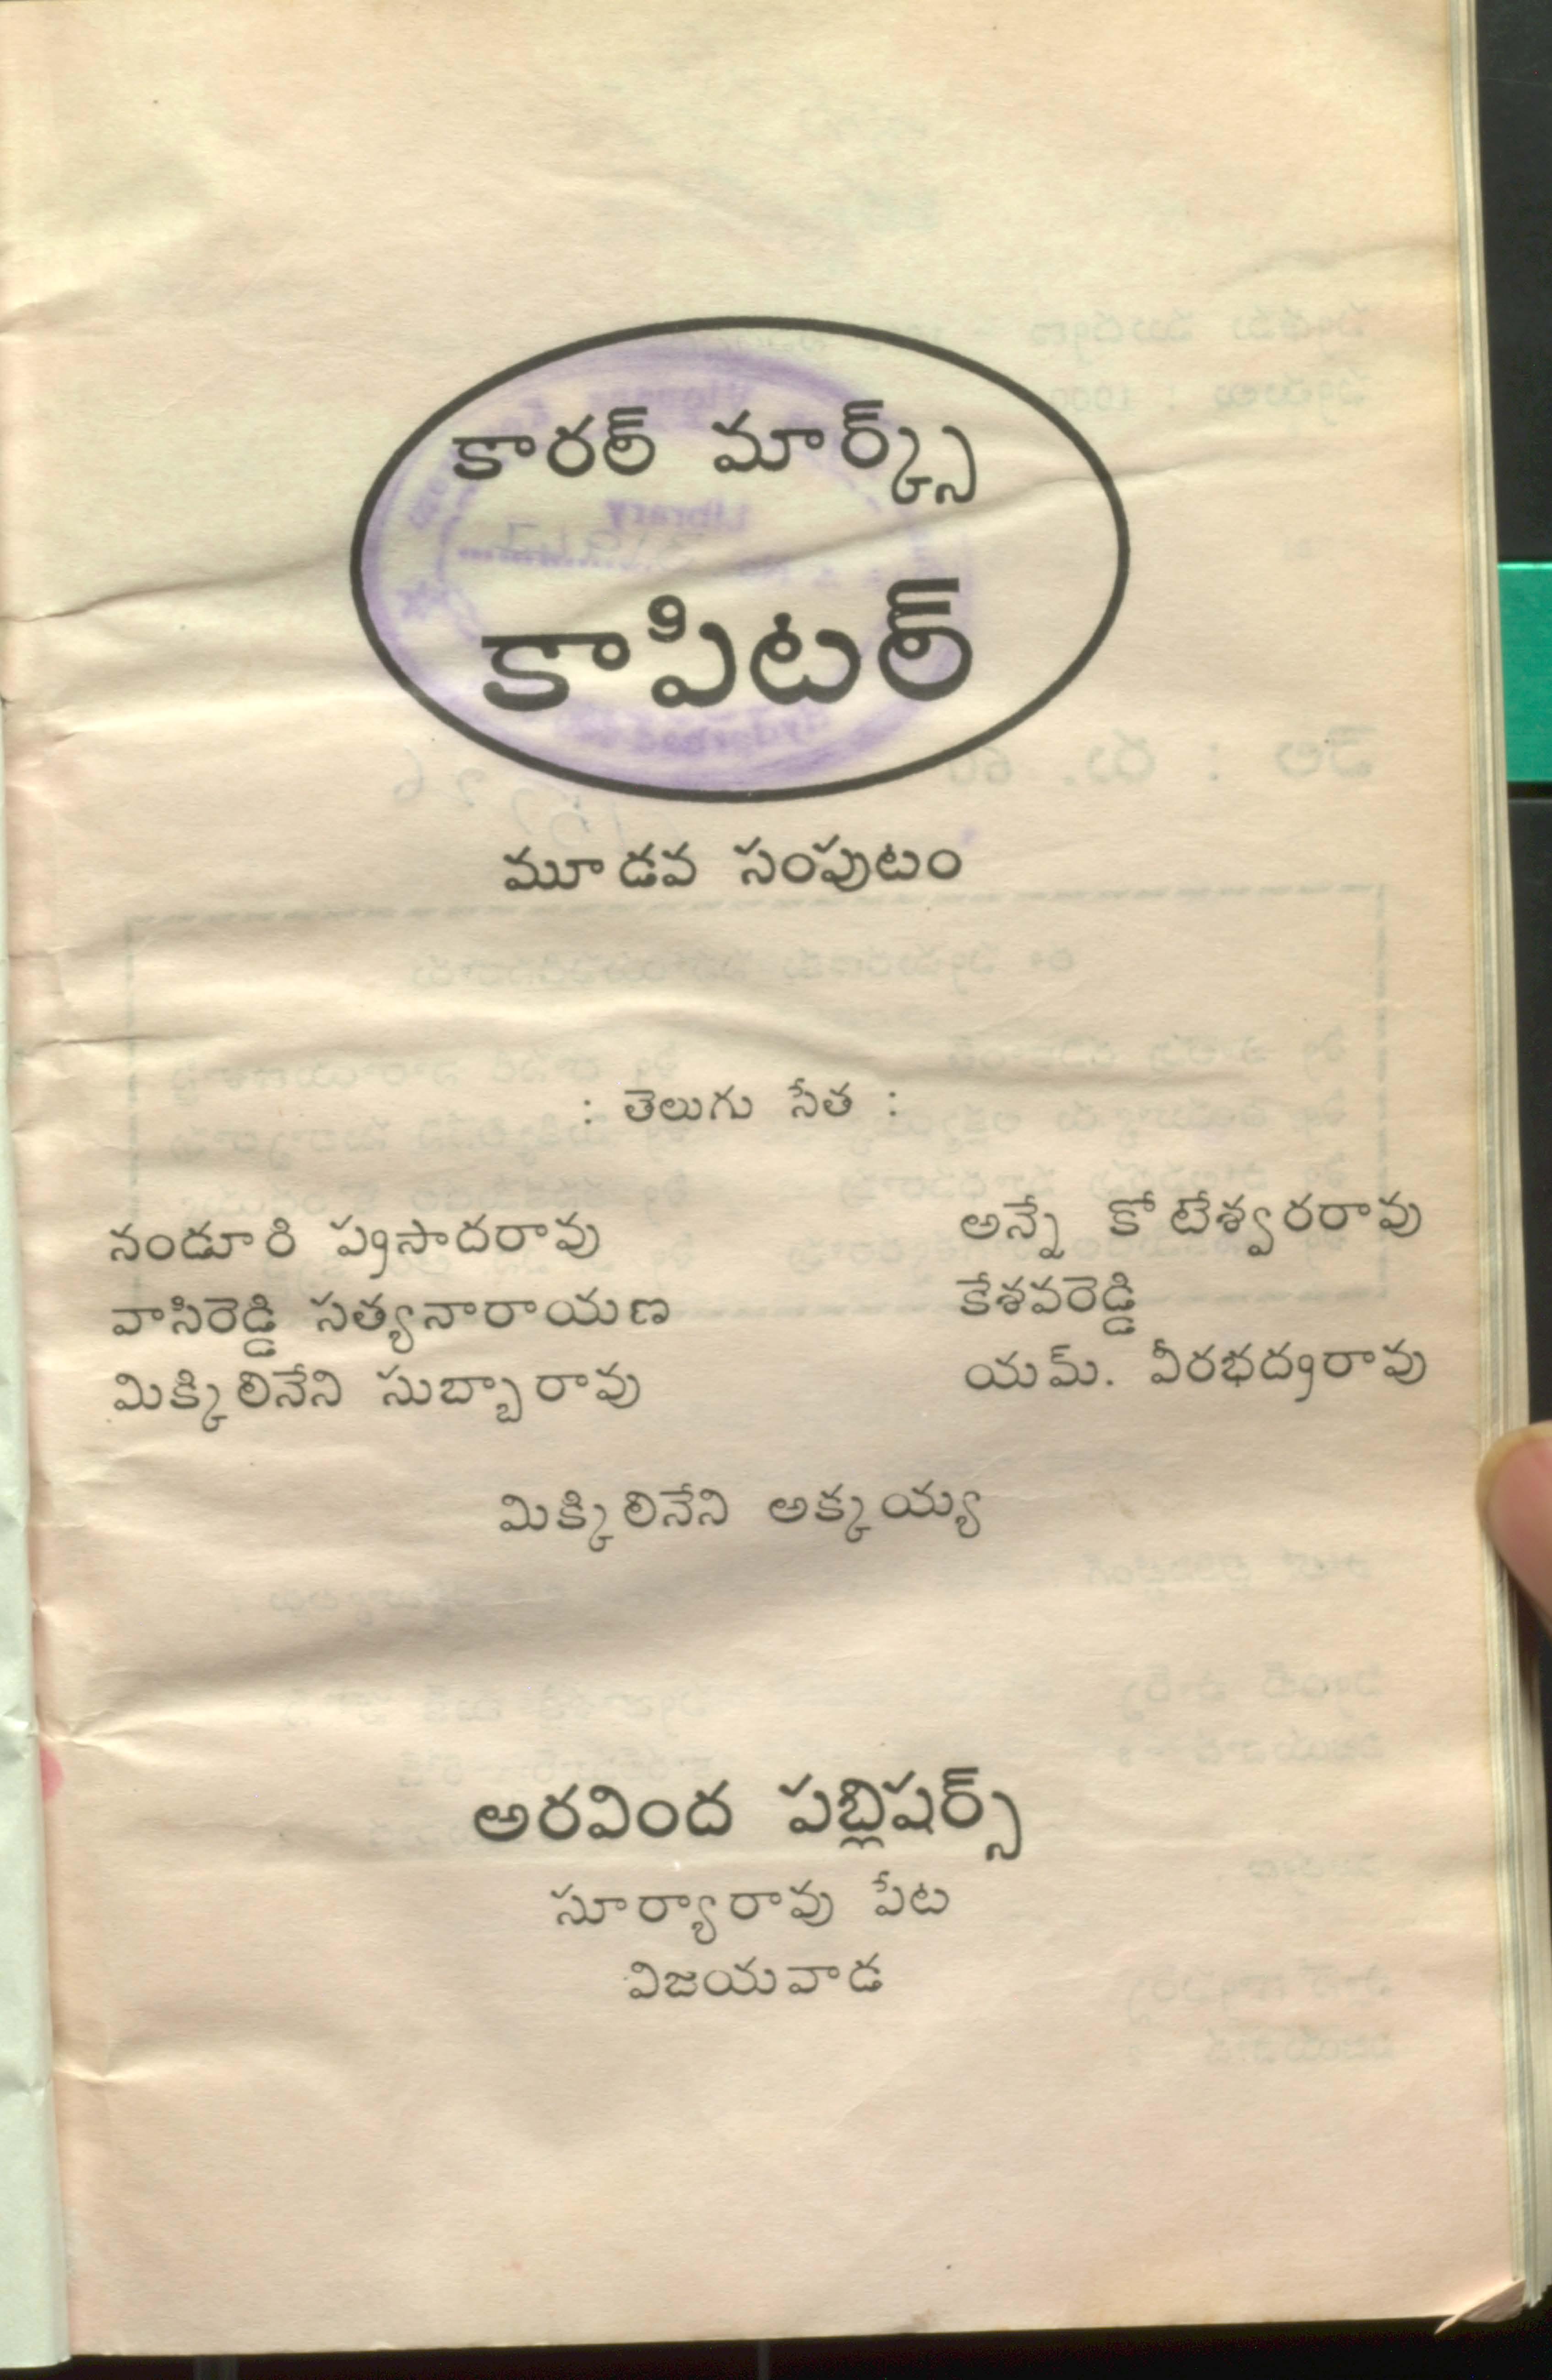 కారల్ మార్క్స్
కాపిటల్
మూడవ సంపుటం
: తెలుగు సేత :
నండూరి ప్రసాదరావు
వాసిరెడ్డి సత్యనారాయణ
మిక్కిలినేని సుబ్బారావు
అన్నే కోటేశ్వరరావు
కేశవరెడ్డి
యమ్. వీరభద్రరావు
మిక్కిలినేని అక్కయ్య
అరవింద పబ్లిషర్స్
సూర్యారావు పేట
విజయవాడ